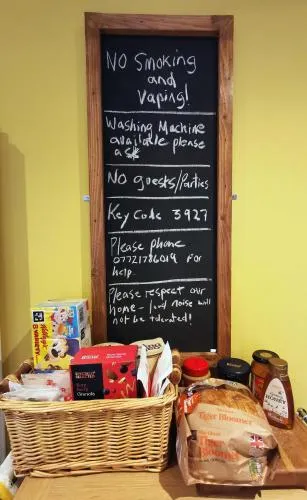 NO Smoking
and
Vaping!
Washing Machine
available please
ask
NO guests/Parties
Key Code 3927
Please phone
07721786019 for
help.
Please respect our
home - loud noise will
not be tolerated!
Kellogg's
8
VARIETY
Granola
Tiger Bloomer
Tiger
Bloomer
HONEY